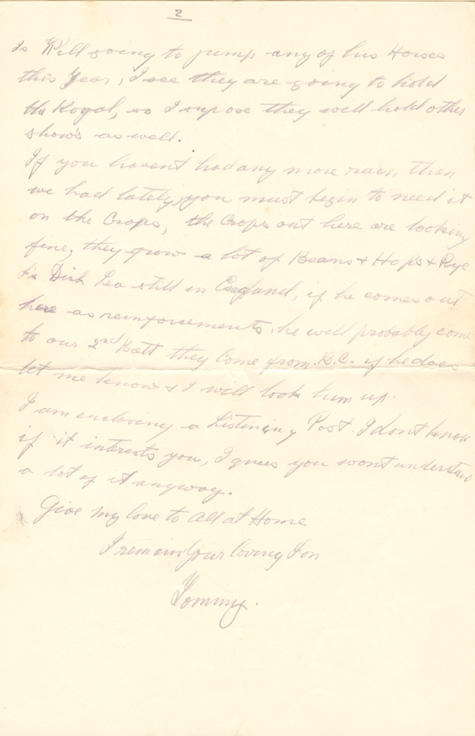 2
Is Will going to jump any of his Horses
this Year, I see they are going to hold
the Royal, so I supose they will hold other
shows as well.
If you havent had any more rain, then
we had lately, you must begin to need it
on the Crops, the Crops out here are looking
fine, they grow a lot of Beans & Hops & Rye
Is Dick Lea still in England, if he comes out
here as reinforcements, he will probably come
to our 2nd Batt they come from B.C. if he does
let me know & I will look him up.
I am enclosing a Listening Post, I dont know
if it interests you, I guess you wont understand
a lot of it anyway.
Give my love to All at Home
I remain Your loving Son
Tommy.